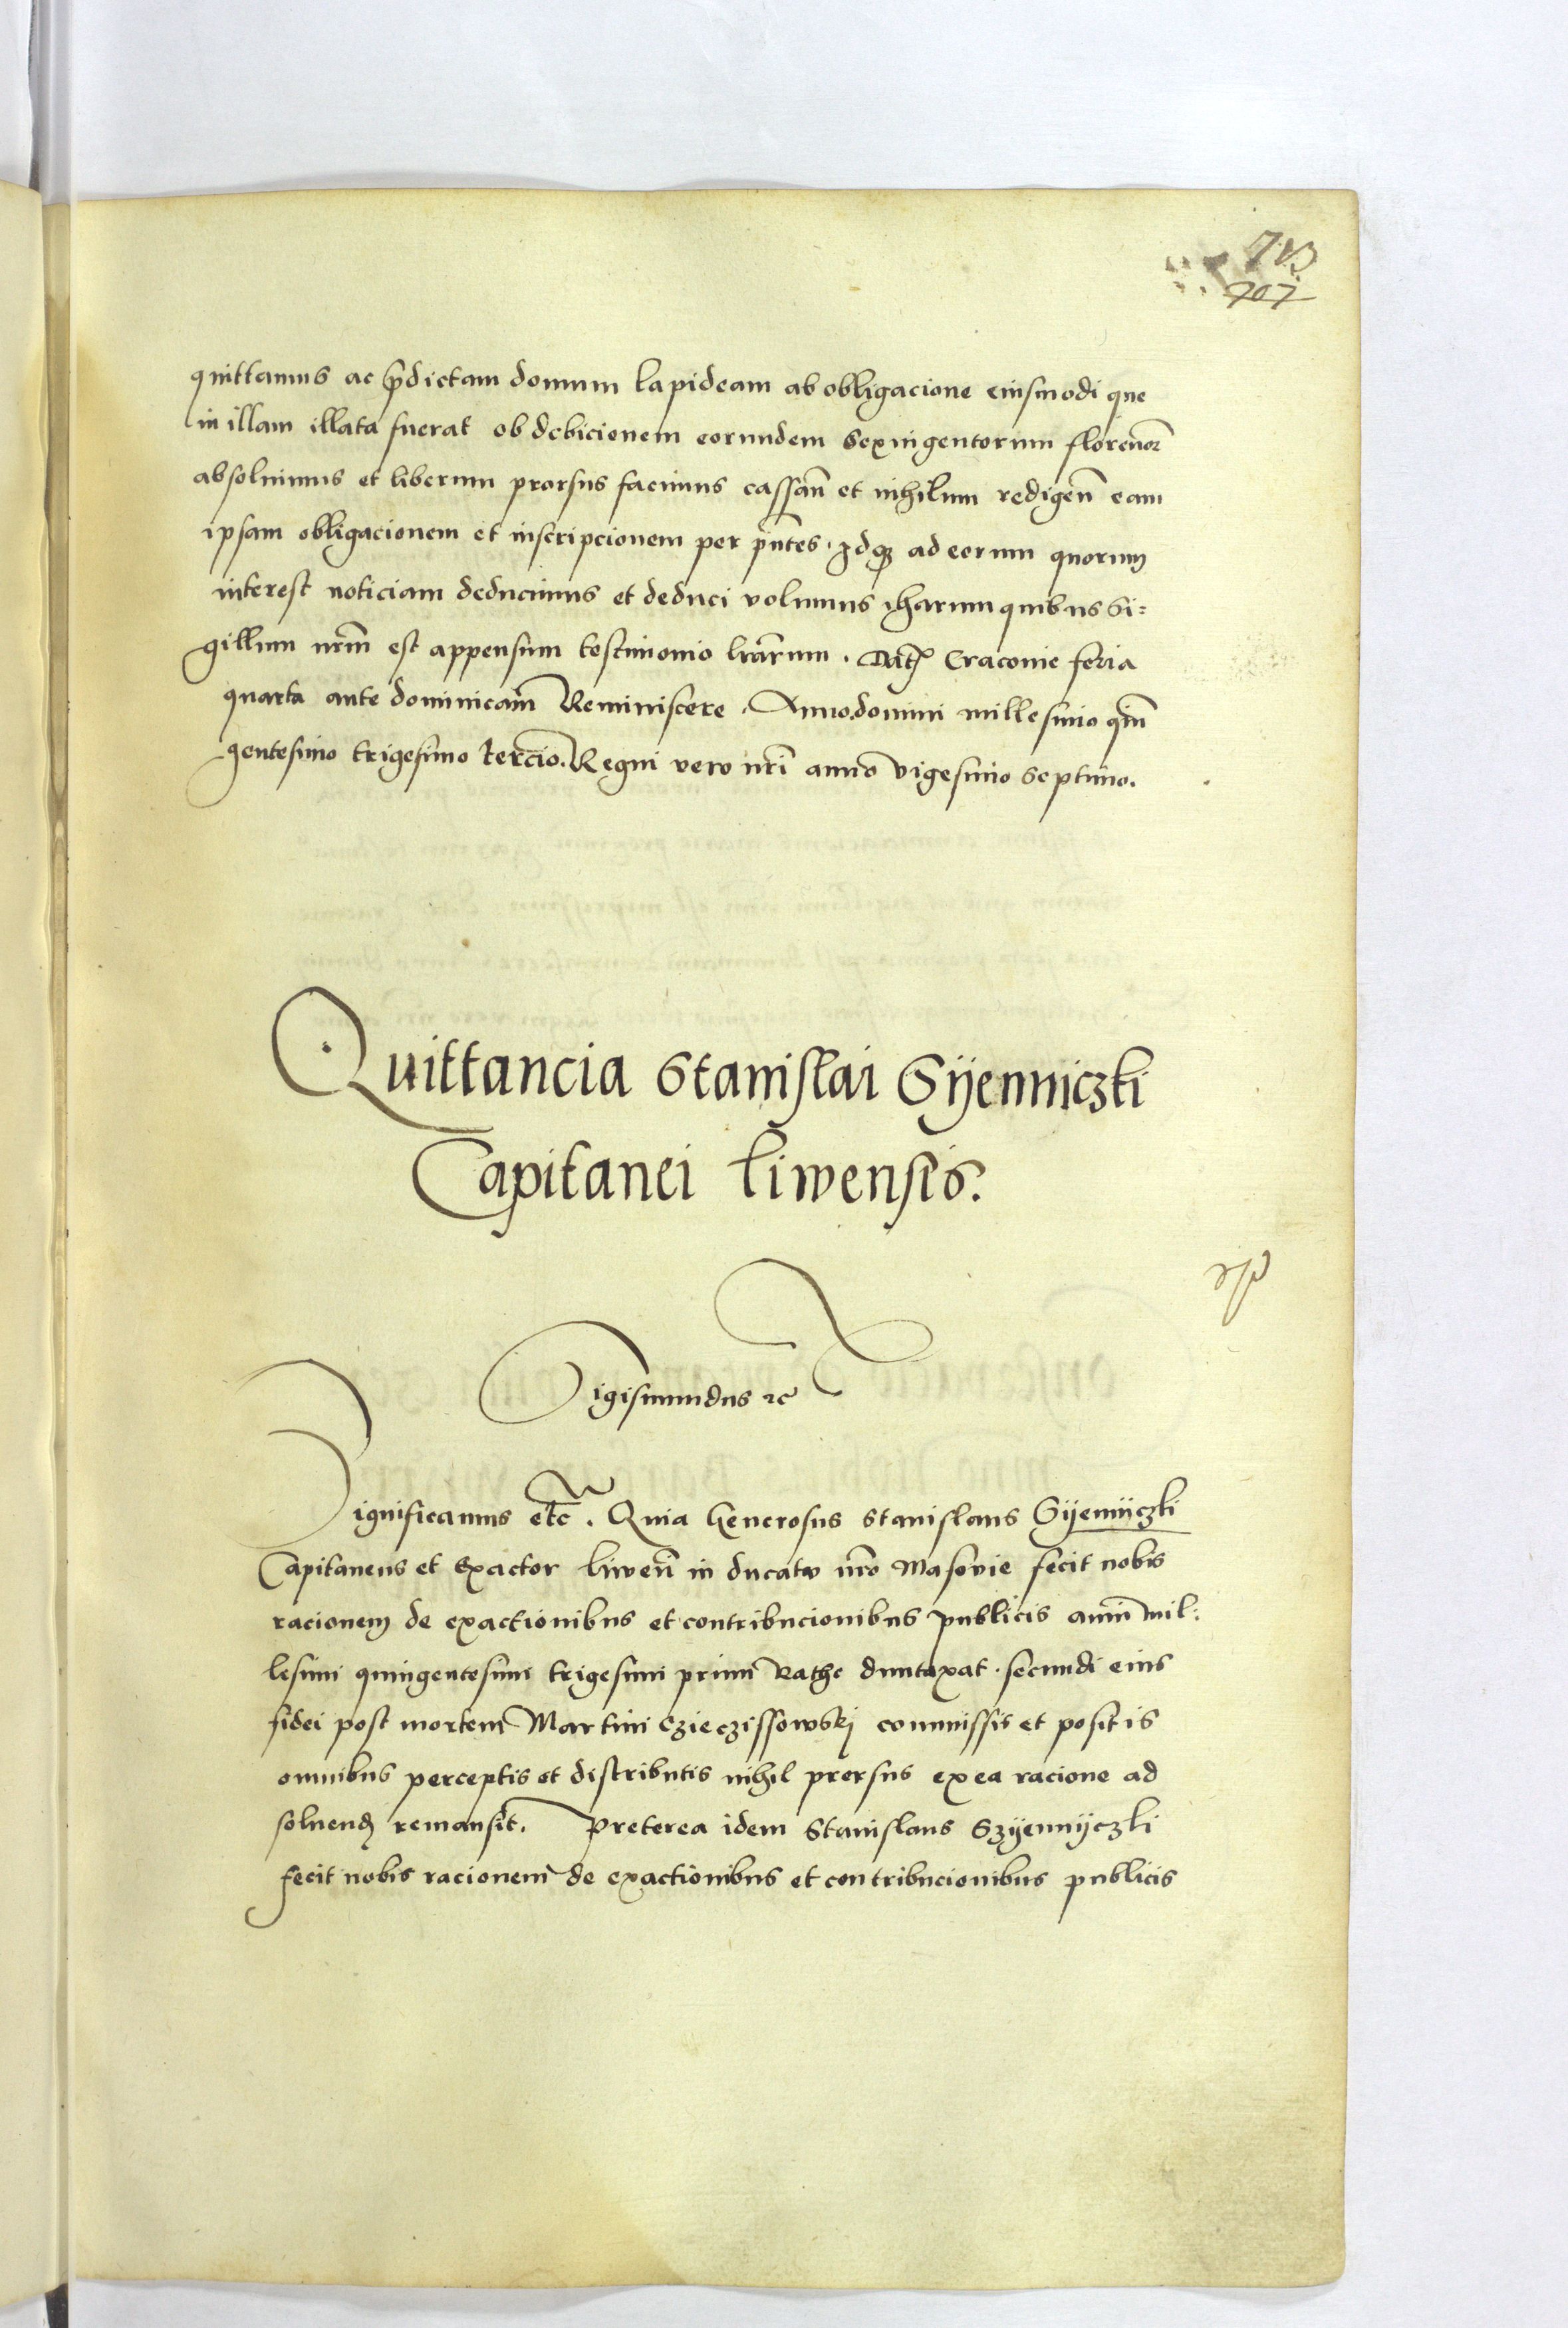 707
quittamus ac p̄dictam domum lapideam ab obligacione eiusmodi que
in illam illata fuerat ob debicionem eorundem sexingentorum florenor
absoluimus et liberum prorsus facimus cassan̄ et nihilum redigen̄ eam
ipsam obligacionem et inscripcionem per pn̄tes. Idqꝫ ad eorum quorum
interest noticiam deducimus et deduci volumus, harum quibus si=
gillum nr̄m est appensum testimonio lrārum. Dat̄ Cracovie feria
quarta ante dominicam Reminiscere. Anno domini millesimo qin̄
gentesimo trigesimo tercio. Regni vero nr̄i anno vigesimo septimo.
Quittancia Stanislai Sijenniczki
Capitanei Liwensis.
Sigismundus ⁊c
Significamus etc̄. Quia Generosus Stanislaus Sijennijczki
Capitaneus et Exactor liwen̄ in ducatu nr̄o Masovie fecit nobis
racionem de exactionibus et contribucionibus publicis anni mil:
lesimi quingentesimi trigesimi primi Rathe duntaxat secundi eius
fidei post mortem Martini Czieczissowskj commissis et positis
omnibus perceptis et distributis nihil prorsus ex ea racione ad
soluend̄ remansit. Preterea idem Stanislaus Szijennijczki
fecit nobis racionem de exactionibus et contribucionibus publicis